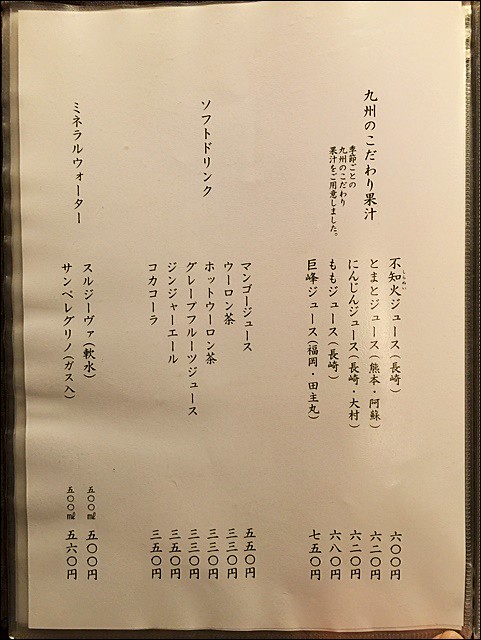 九州のこだわり果汁
季節ごとの
九州のこだわり
果汁をご用意しました。
不知火ジュース(長崎) 六〇〇円
しらぬい
とまとジュース(熊本・阿蘇) 六二〇円
にんじんジュース(長崎・大村) 六二〇円
ももジュース(長崎) 六八〇円
巨峰ジュース(福岡・田主丸) 七五〇円
ソフトドリンク
マンゴージュース 五五〇円
ウーロン茶 三三〇円
ホットウーロン茶 三三〇円
グレープフルーツジュース 三三〇円
ジンジャーエール 三五〇円
コカコーラ 三五〇円
ミネラルウォーター
スルジーヴァ(軟水) 五〇〇㎖ 五〇〇円
サンペレグリノ(ガス入) 五〇〇㎖ 五六〇円